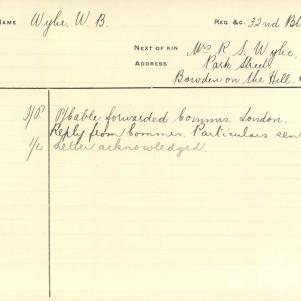 NAME Wylie, W. B. REG. &C. 32nd B
NEXT OF KIN Mrs R. S. Wylie,
ADDRESS Park Street,
Bowden on the Hill.
P/Cable forwarded Commrs. London.
Reply from Commrs. Particulars sen
Letter acknowledged.